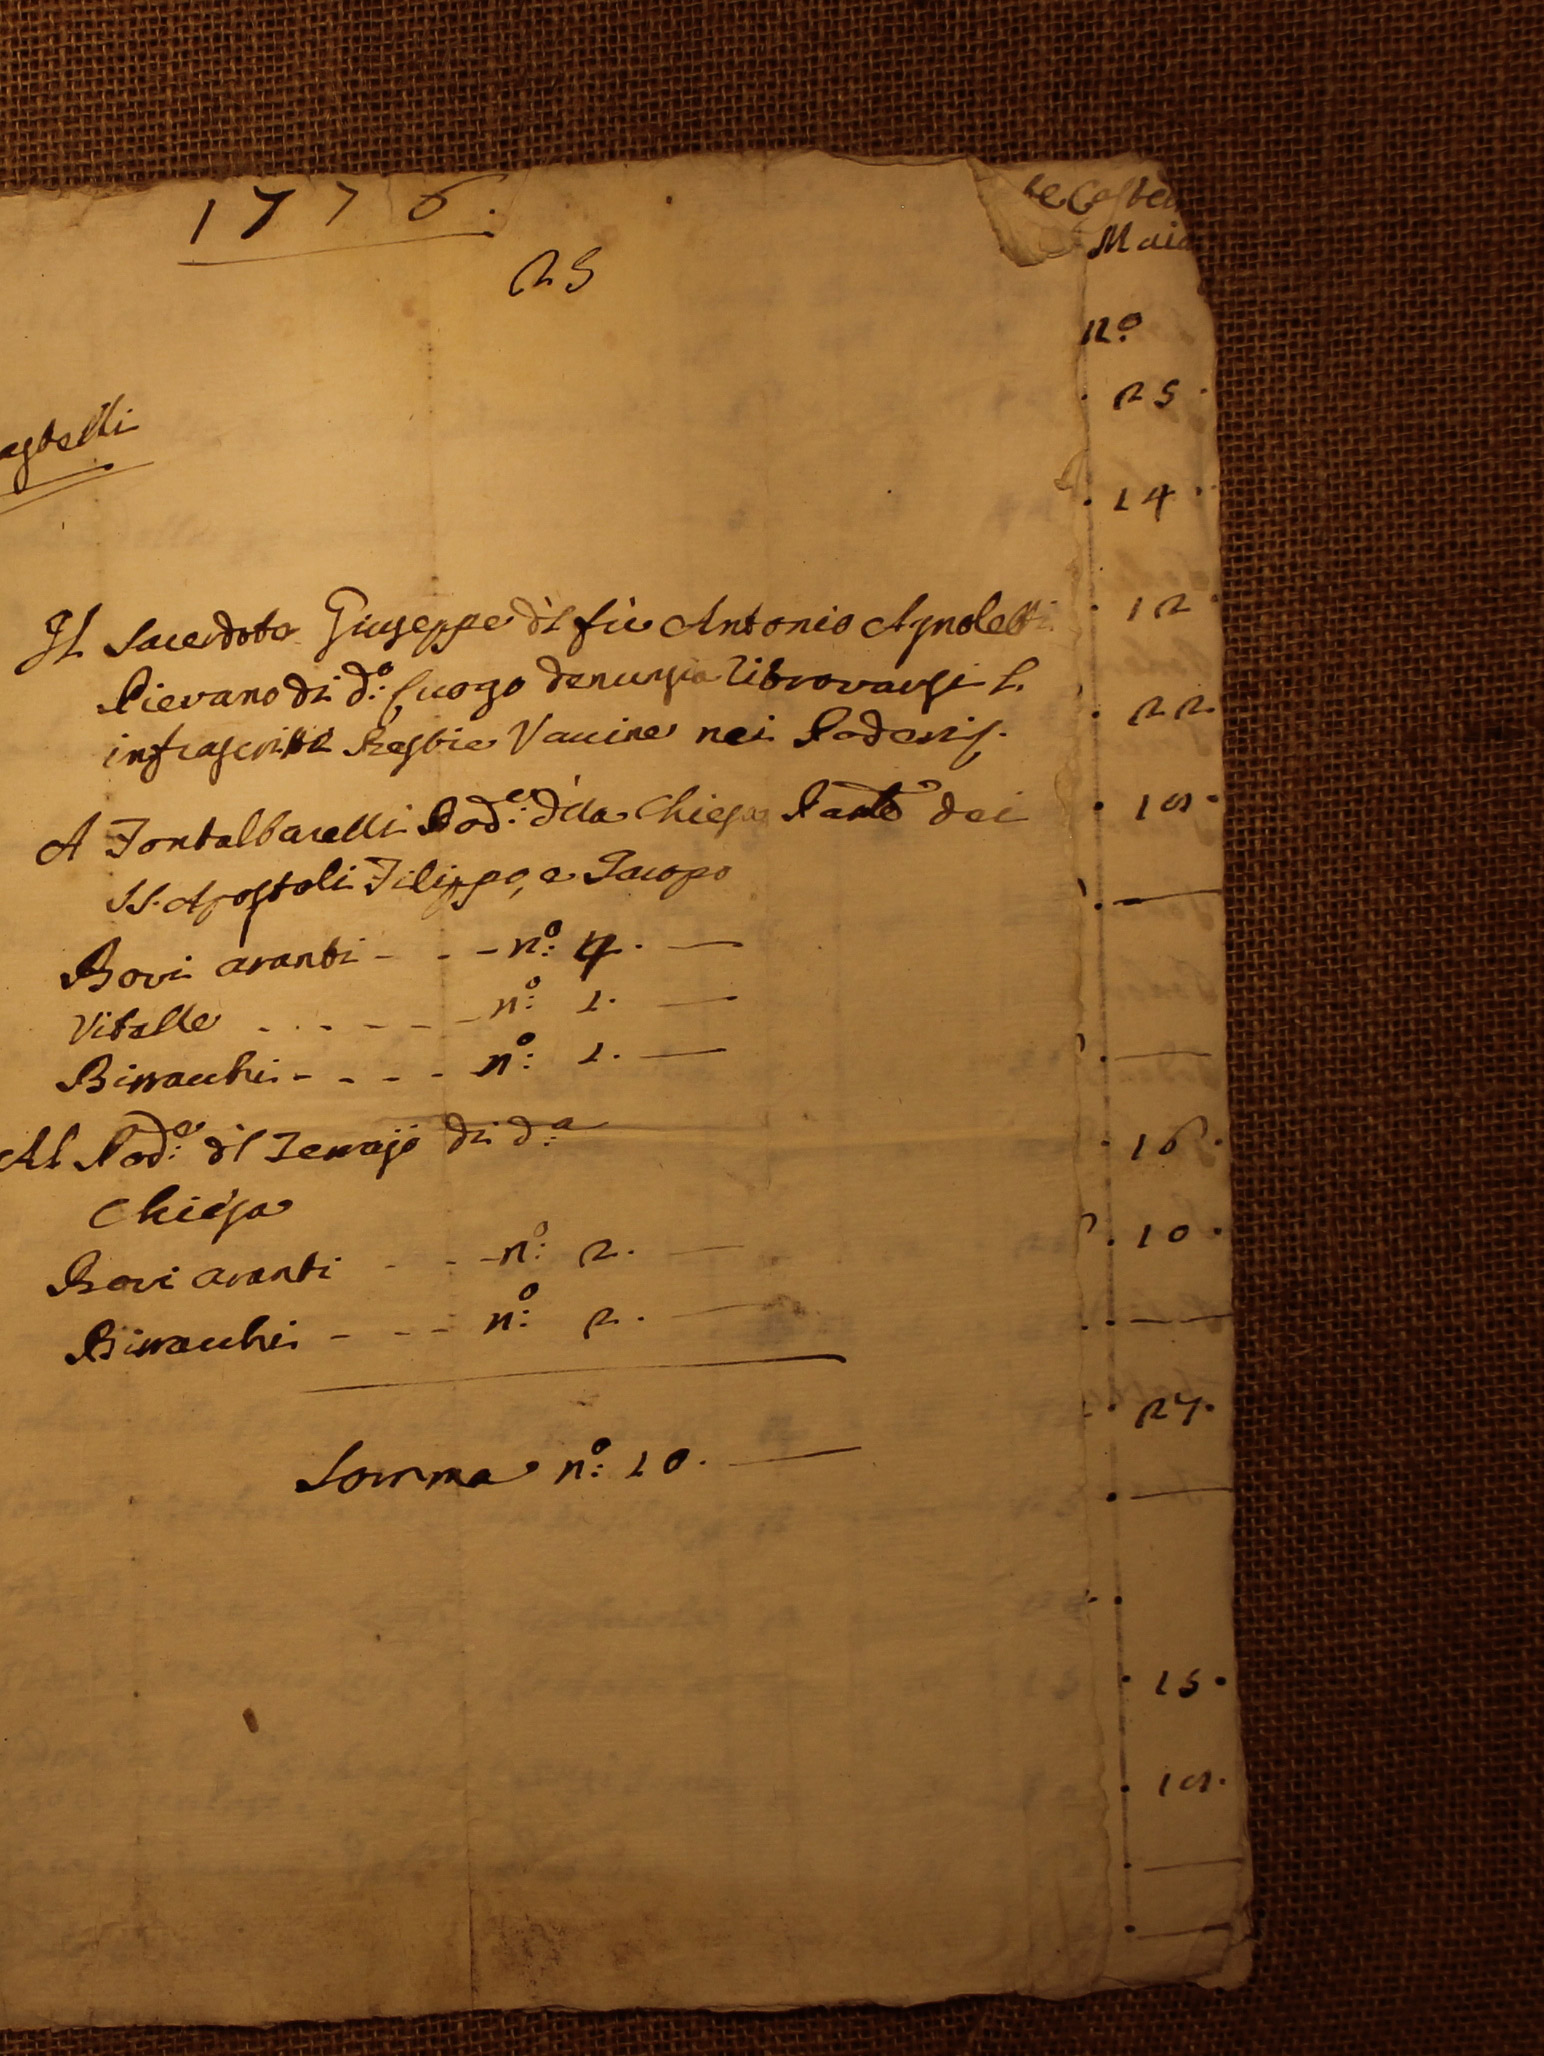 1776.
25
Il Sacerdote Giuseppe dl fù Antonio Agnoletti
Pievano di d:º Luogo denunzia ritrovarsi l.
infrascritte Bestie Vaccine nei Poderi
A Fontalbucelli Pod:e d'la Chiesa dei
SS. Apostoli Filippo, e Jacopo
Bovi aranti - - - nº: 4. —
Vitelle - - - - - nº: 1. —
Birracchi - - - - nº: 1. —
Al Pod:e dl Terrajo di d:a
Chiesa
Bovi aranti - - - nº: 2. —
Birracchi - - - nº: 2. —
Somma nº: 10. —
Nº
25
14
12
22
—
—
16
10
—
27
—
15
—
—